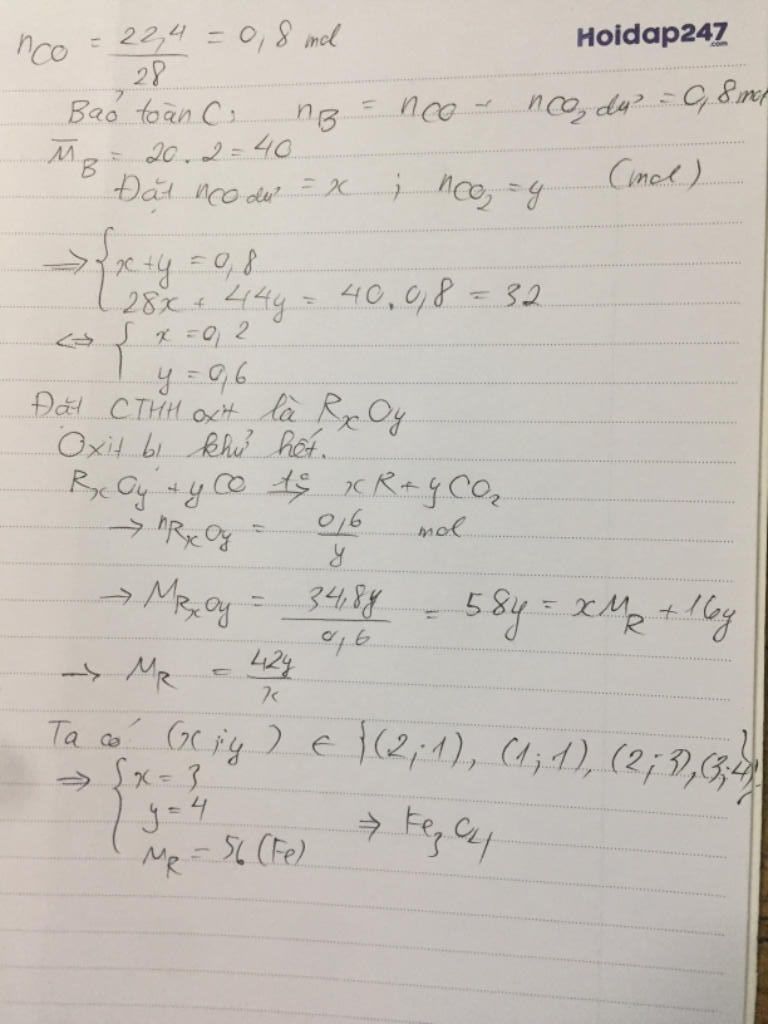 nCO = 22,4/28 = 0,8 mol
Hoidap247.com
Bảo toàn C: nB = nCO - nCO2 dư = 0,8 mol
M̅B = 20.2 = 40
Đặt nCO dư = x ; nCO2 = y (mol)
=> { x+y = 0,8
28x + 44y = 40.0,8 = 32
<=> { x = 0,2
y = 0,6
Đặt CTHH oxit là RxOy
Oxit bị khử hết.
RxOy + yCO t°→ xR + yCO2
→ nRxOy = 0,6/y mol
→ MRxOy = 34,8y/0,6 = 58y = xMR + 16y
→ MR = 42y/x
Ta có (x;y) ∈ {(2;1), (1;1), (2;3), (3;4)}
=> { x = 3
y = 4 => Fe3O4
MR = 56 (Fe)